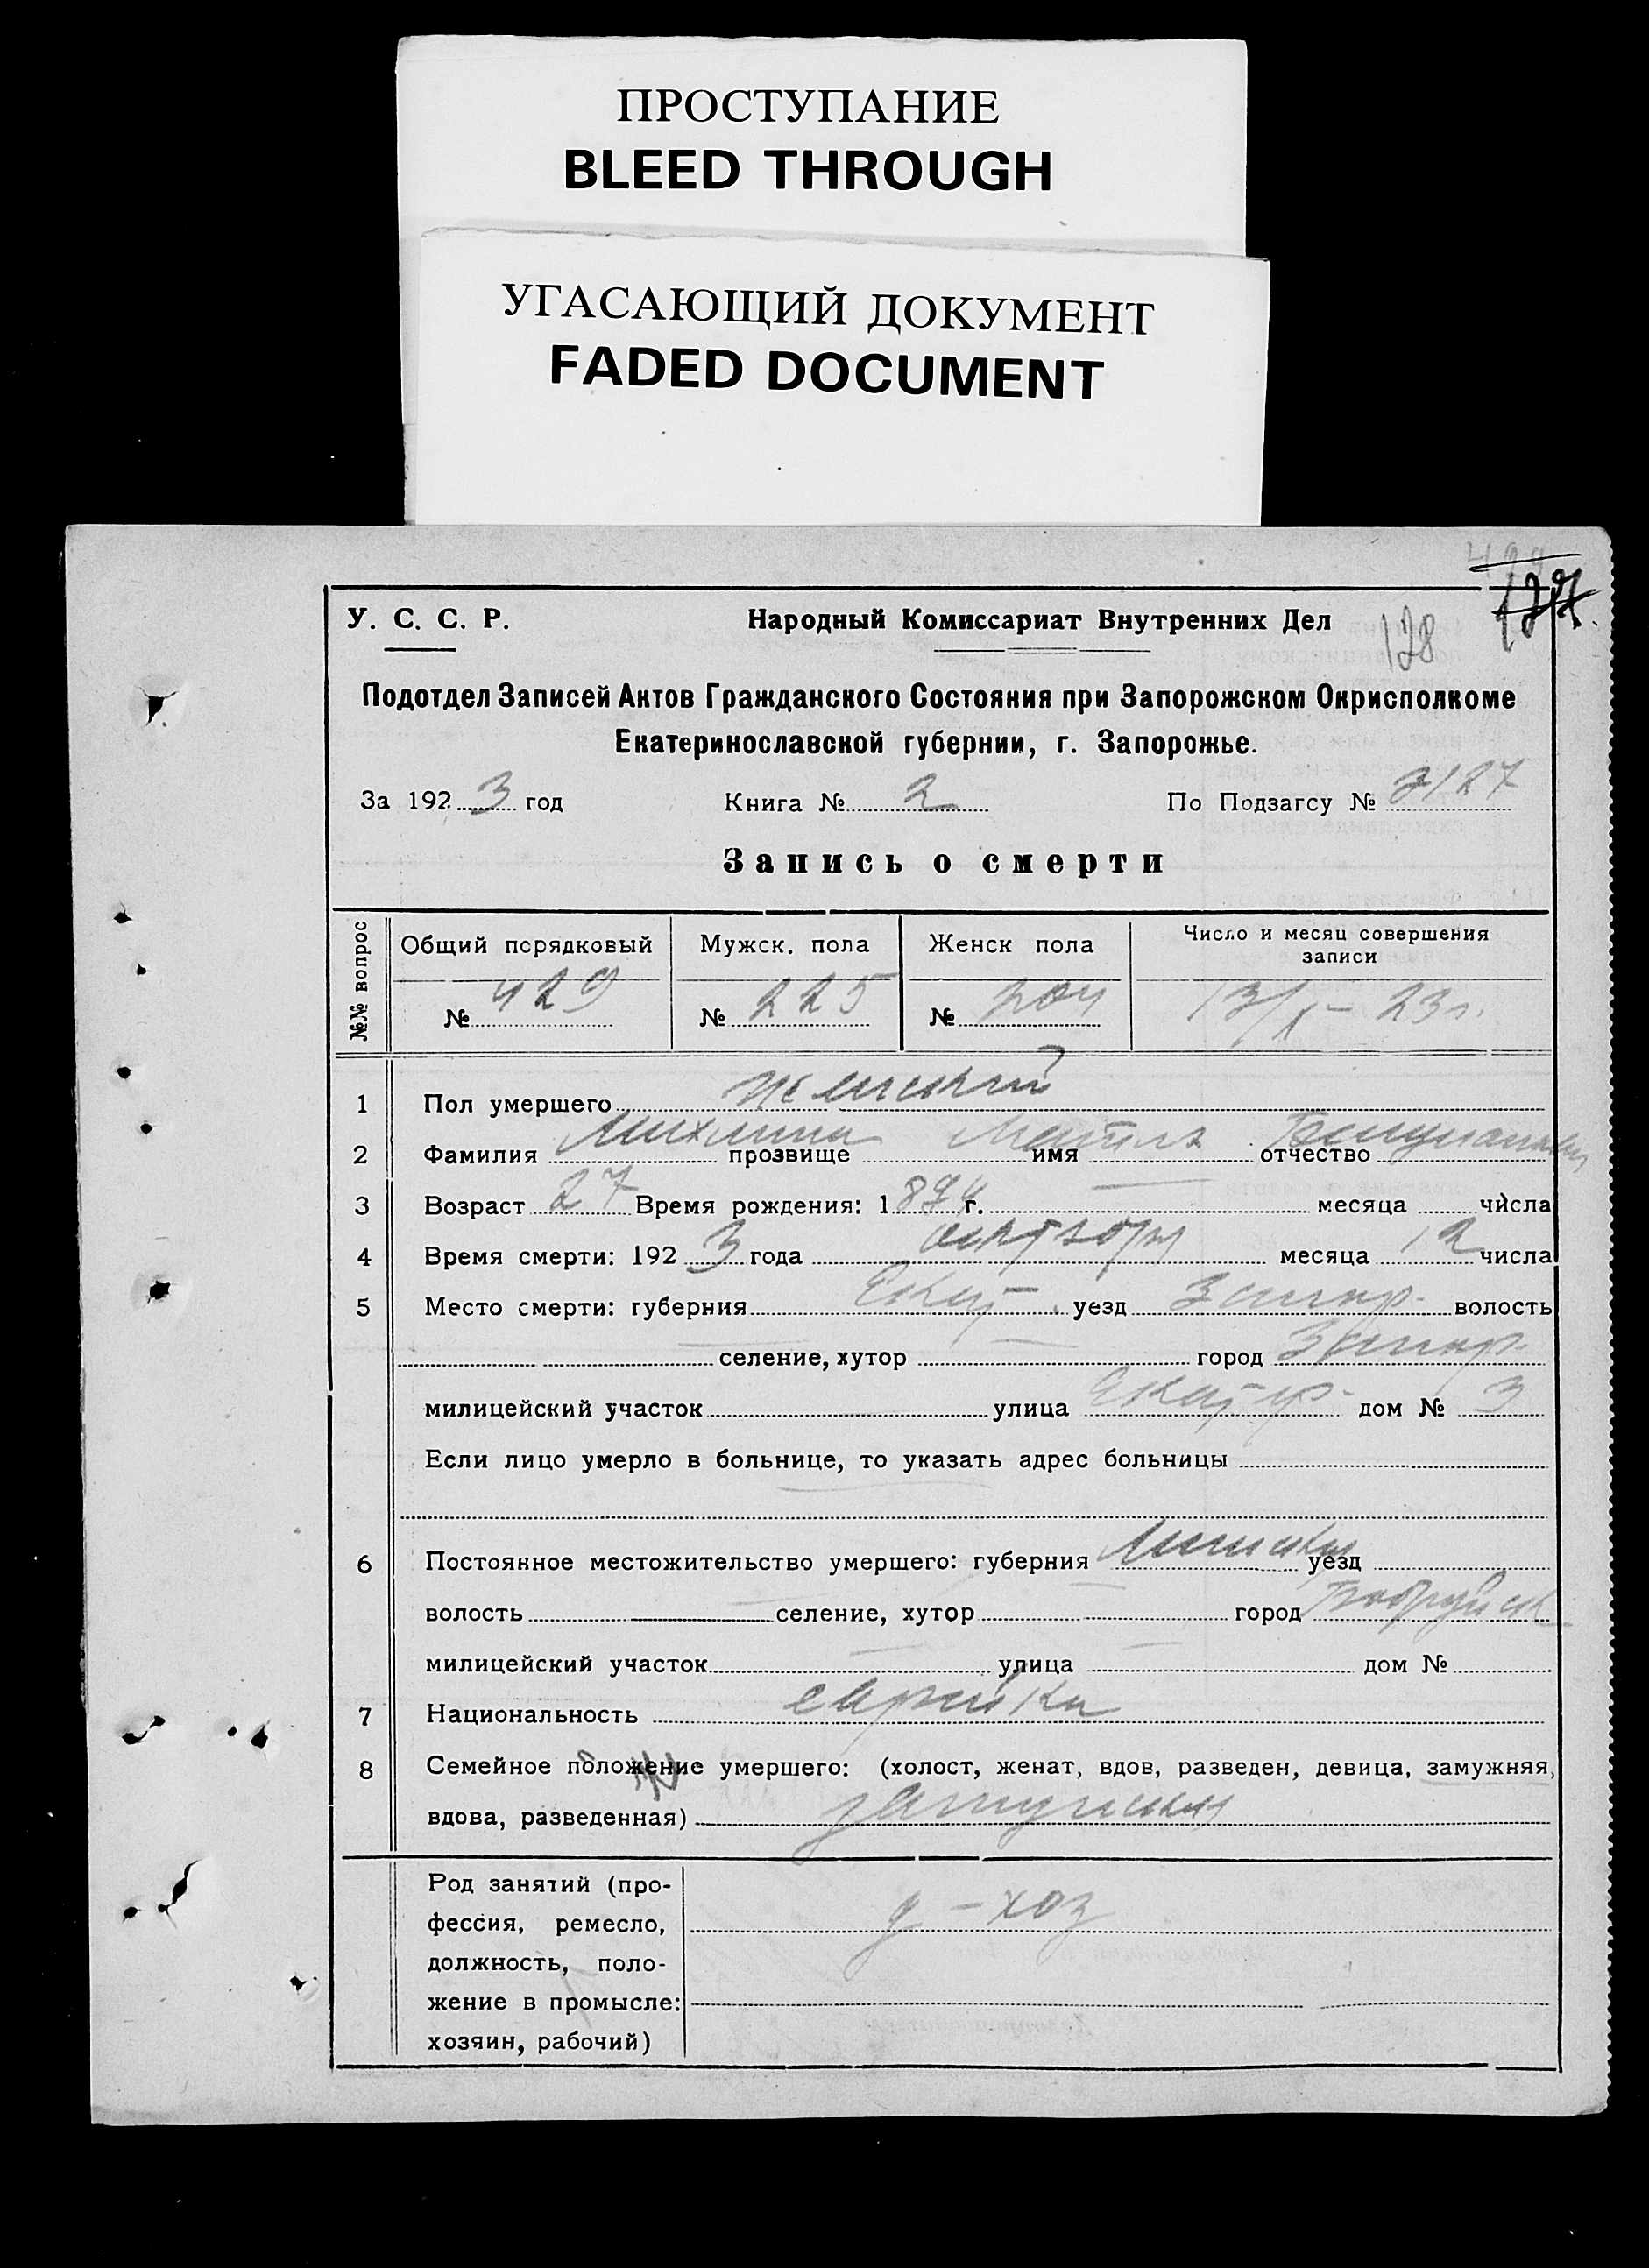 ПРОСТУПАНИЕ
BLEED THROUGH
УГАСАЮЩИЙ ДОКУМЕНТ
FADED DOCUMENT
У. С. С. Р. Народный Комиссариат Внутренних Дел 128
Подотдел Записей Актов Гражданского Состояния при Запорожском Окрисполкоме
Екатеринославской губернии, г. Запорожье.
За 192 3 год Книга № 2 По Подзагсу №
Запись о смерти
№№ вопрос Общий порядковый Мужск. пола Женск пола Число и месяц совершения
записи
№ 429 № 225 № 204 13/X – 23 г.
1 Пол умершего женский
2 Фамилия Михлина прозвище имя отчество
3 Возраст 27 Время рождения: 1 г. месяца числа
4 Время смерти: 192 3 года октября месяца 12 числа
5 Место смерти: губерния Екат. уезд Запор. волость
селение, хутор город Запор.
милицейский участок улица Екатер. дом № 3
Если лицо умерло в больнице, то указать адрес больницы
6 Постоянное местожительство умершего: губерния Минская уезд
волость селение, хутор город Бобруйск
милицейский участок улица дом №
7 Национальность еврейка
8 Семейное положение умершего: (холост, женат, вдов, разведен, девица, замужняя,
вдова, разведенная) замужняя
Род занятий (про-
фессия, ремесло, д – хоз
должность, поло-
жение в промысле:
хозяин, рабочий)